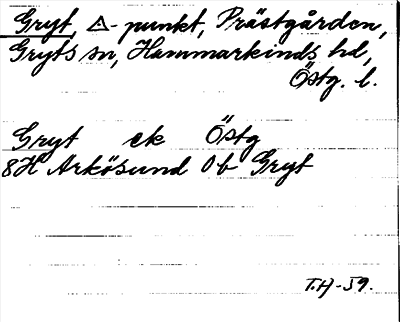 Gryt, △-punkt, Prästgården,
Gryts sn, Hammarkinds hd,
Östg. l.
Gryt ek Östg
8H Arkösund 0b Gryt
T.H-59.